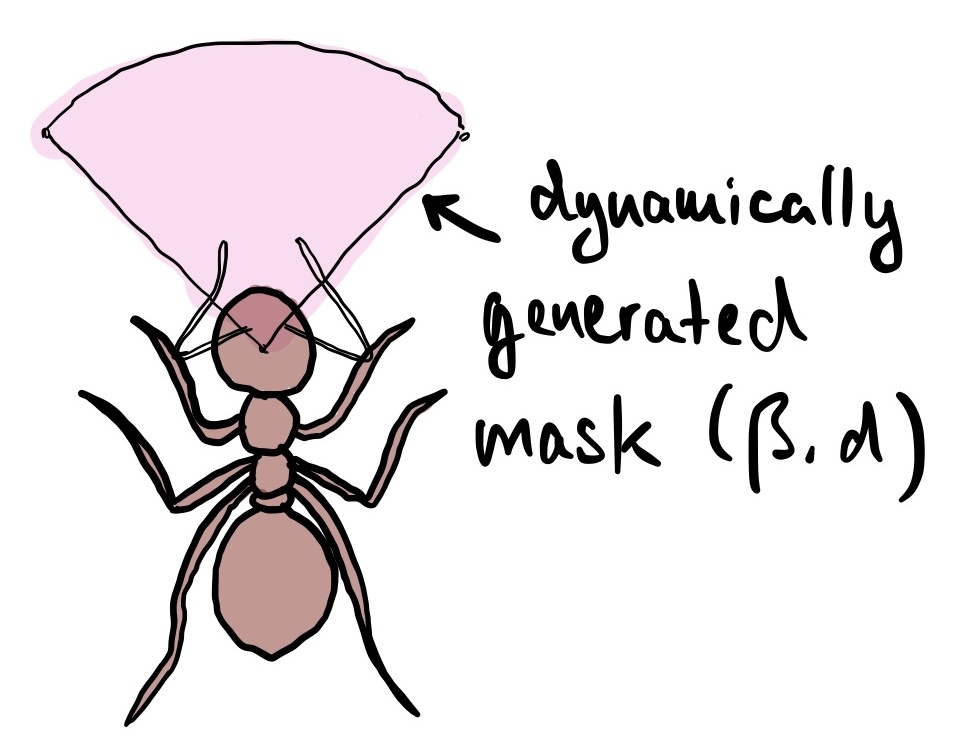 dynamically
generated
mask (β, d)